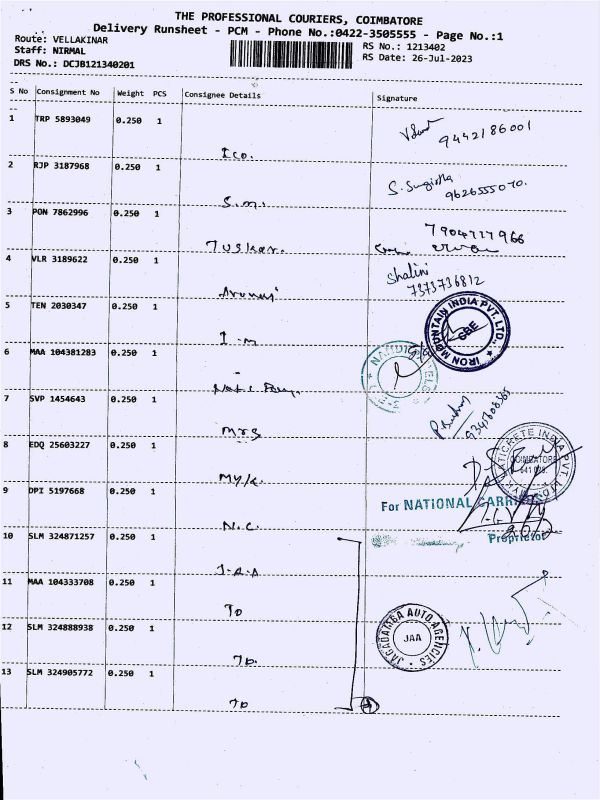 THE PROFESSIONAL COURIERS, COIMBATORE
Delivery Runsheet - PCM - Phone No.:0422-3505555 - Page No.:1
Route: VELLAKINAR
Staff: NIRMAL
DRS No.: DCJB121340201
RS No.: 1213402
RS Date: 26-Jul-2023
S No Consignment No Weight PCS Consignee Details Signature
1 TRP 5893049 0.250 1
Ico. 9442186001
2 RJP 3187968 0.250 1
S.m. S. 9626555070.
3 PON 7862996 0.250 1
Tuskar. 7904717966
4 VLR 3189622 0.250 1
Shalini
7373736812
5 TEN 2030347 0.250 1
I-m
IRON MOUNTAIN INDIA PVT. LTD.
CBE
6 MAA 104381283 0.250 1
7 SVP 1454643 0.250 1
Mrs
8 EDQ 25603227 0.250 1
Myk.
COIMBATORE
641 028.
9 DPI 5197668 0.250 1
N.C.
For NATIONAL CARRIERS
Proprietor
10 SLM 324871257 0.250 1
J-A-A
11 MAA 104333708 0.250 1
To
12 SLM 324888938 0.250 1
To.
JAGADAMBA AUTO AGENCIES
JAA
13 SLM 324905772 0.250 1
To
4